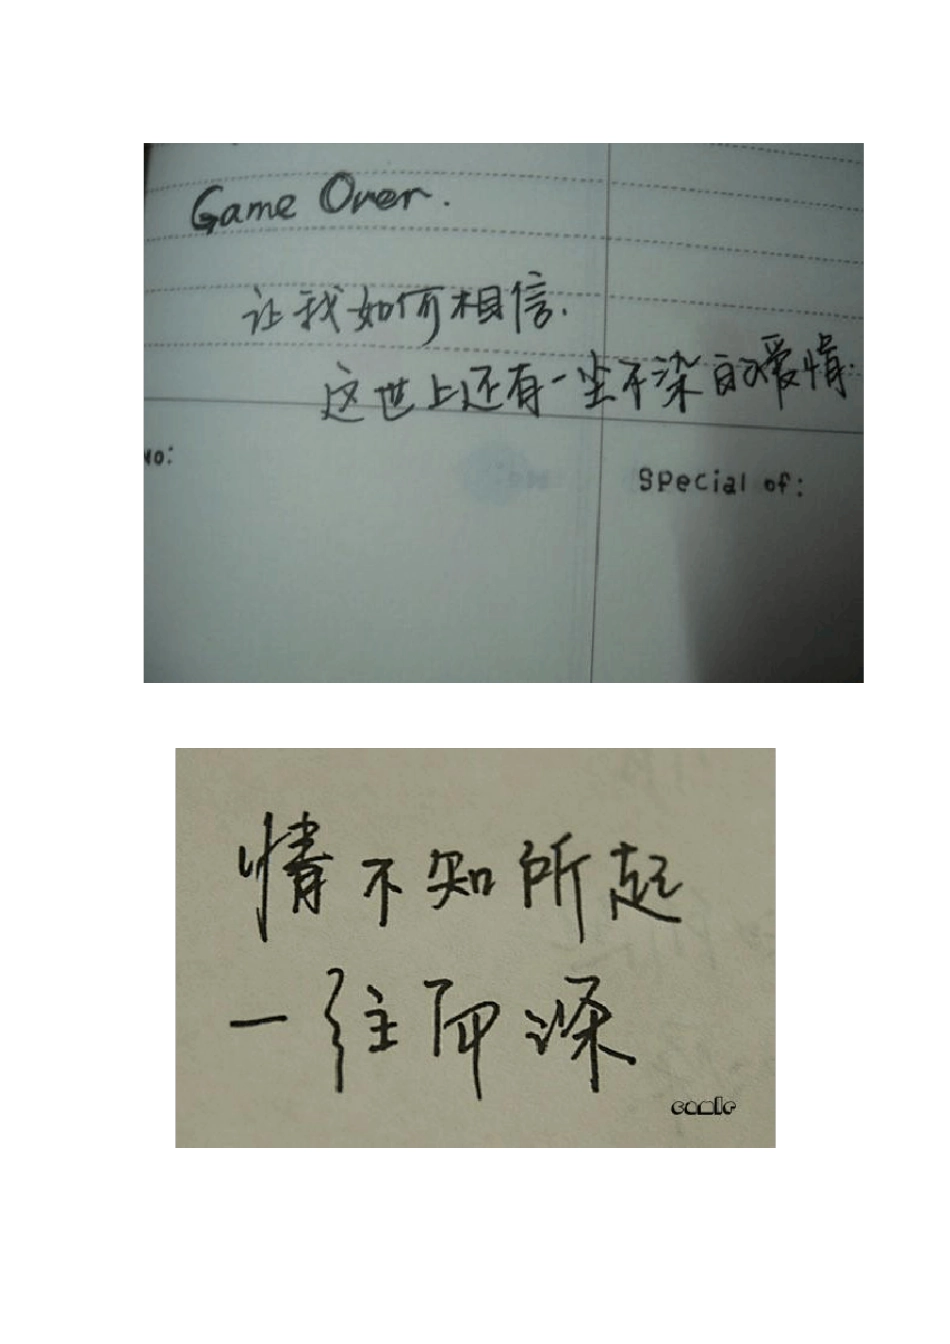 Game Over.
让我如何相信.
这世上还有一尘不染的爱情.
No:
Special of:
情不知所起
一往而深